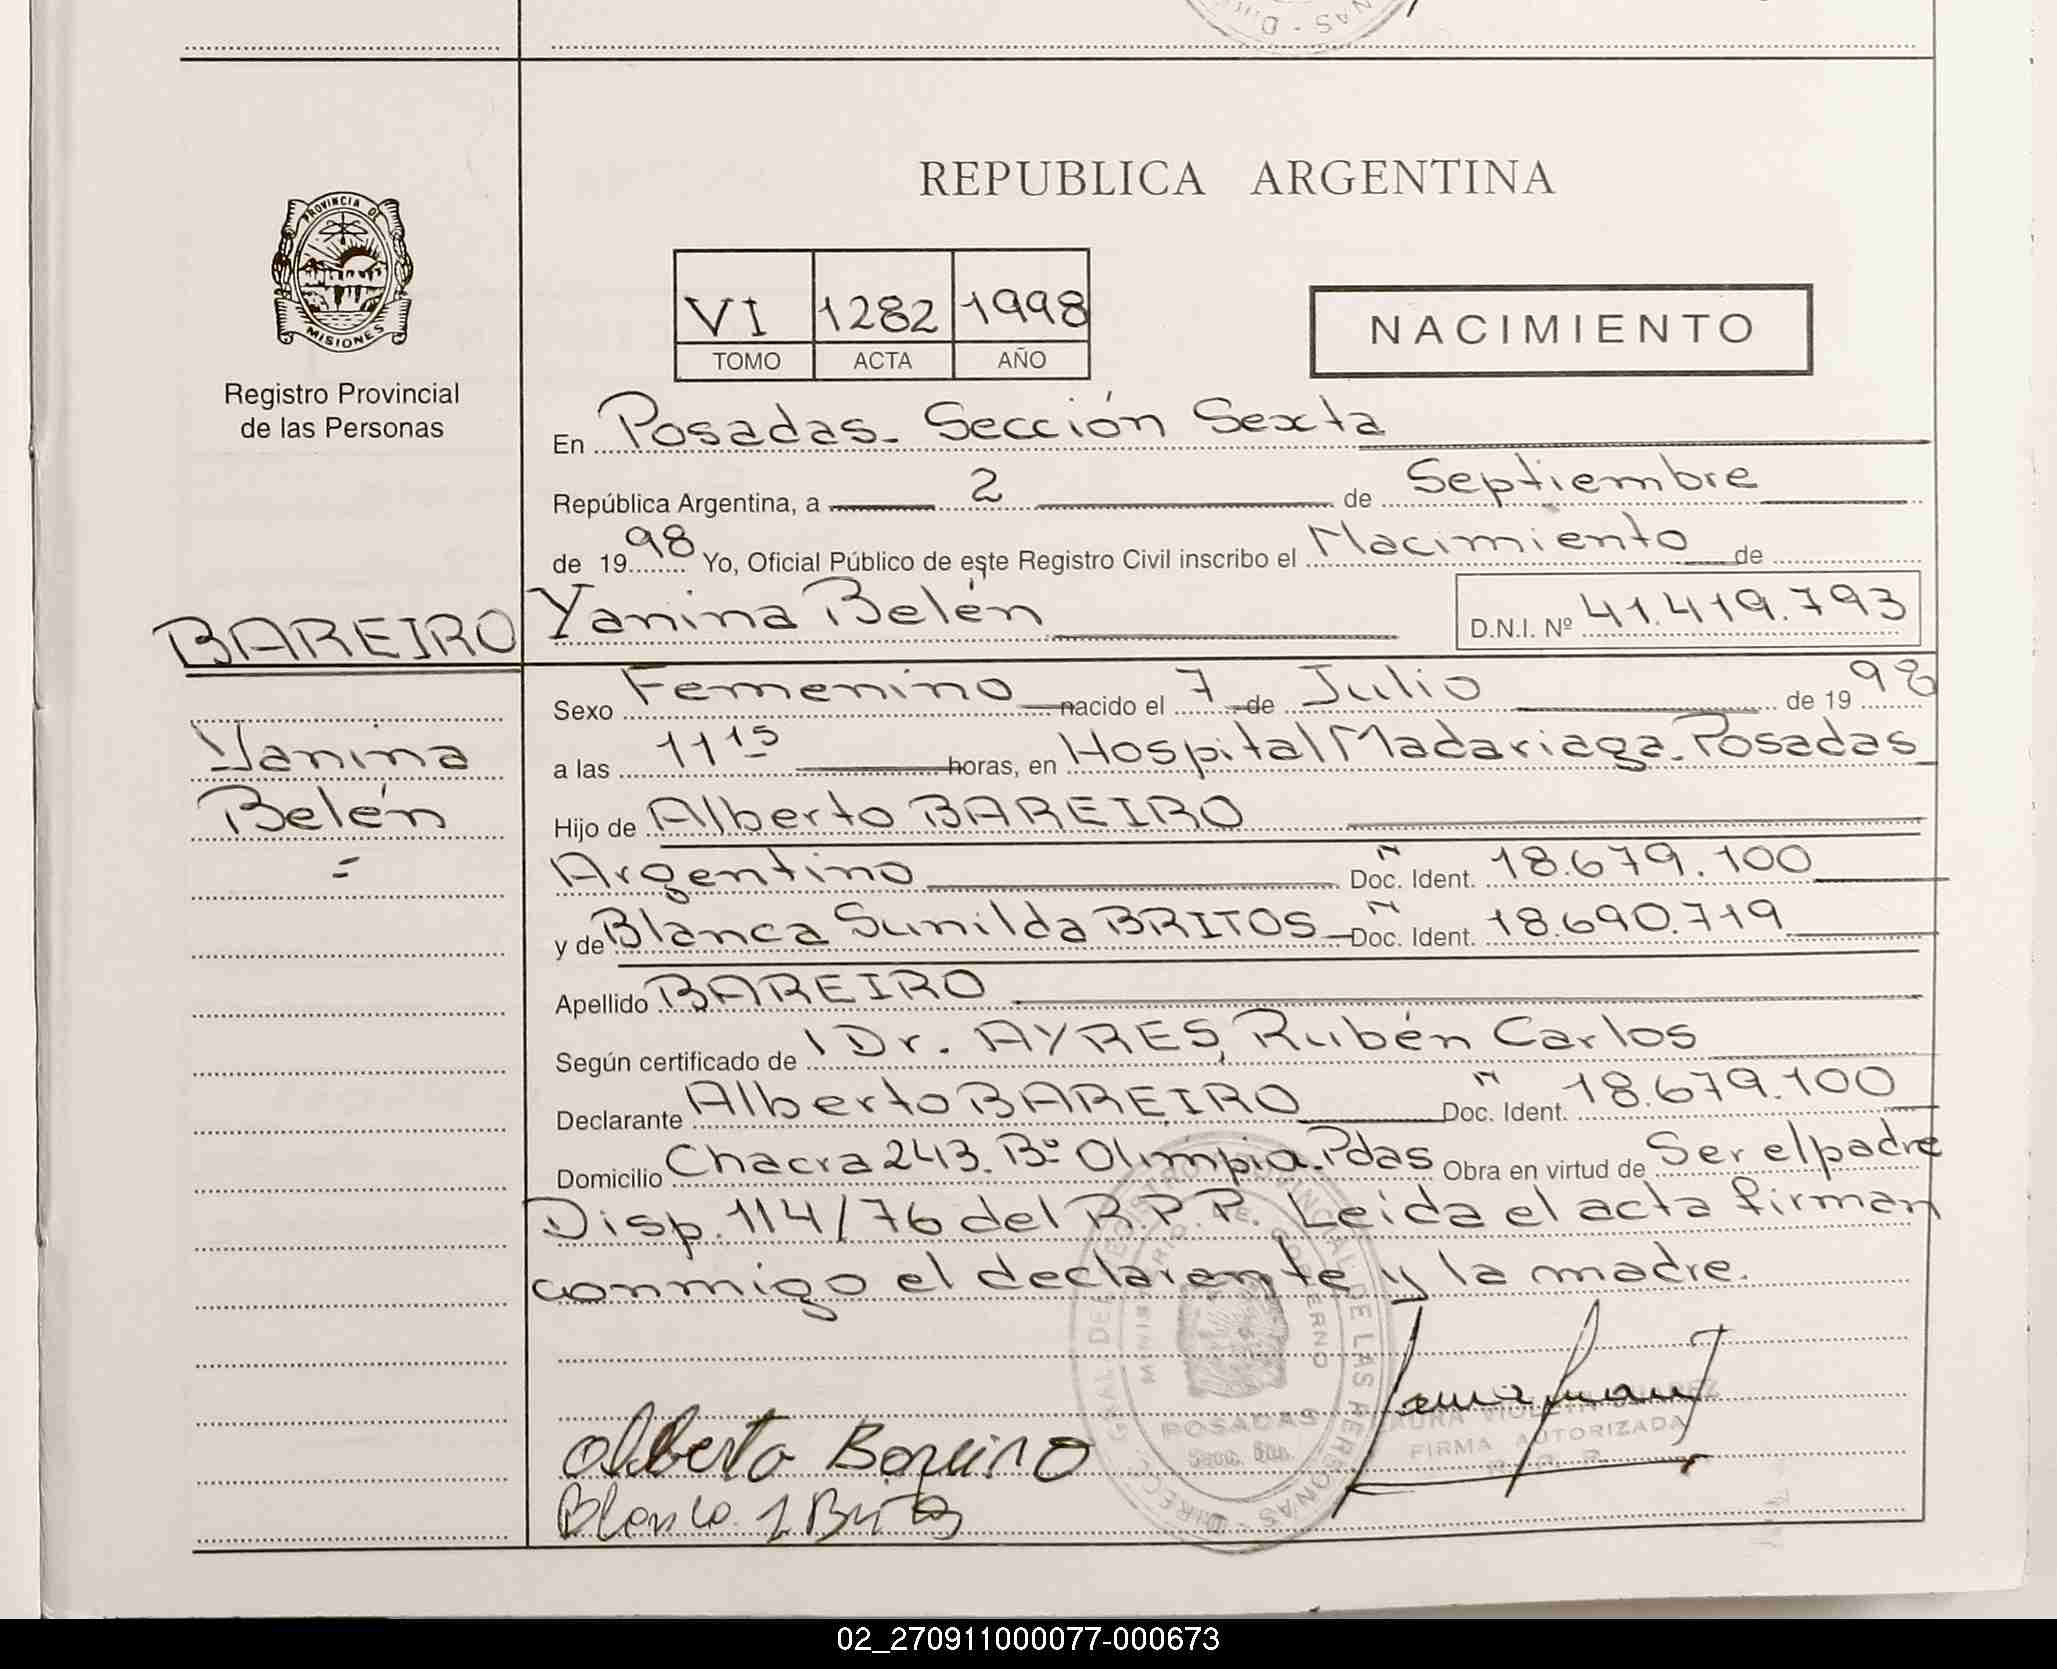 REPUBLICA ARGENTINA
PROVINCIA DE
MISIONES
Registro Provincial
de las Personas
VI 1282 1998
TOMO ACTA AÑO
NACIMIENTO
En Posadas. Sección Sexta
República Argentina, a 2 de Septiembre
de 1998 Yo, Oficial Público de este Registro Civil inscribo el Nacimiento de
BAREIRO
Yanina Belén D.N.I. Nº 41.419.793
Yanina
Belén
Sexo Femenino nacido el 7 de Julio de 1998
a las 11 15 horas, en Hospital Madariaga. Posadas
Hijo de Alberto BAREIRO
Argentino Doc. Ident. 18.679.100
y de Blanca Sunilda BRITOS Doc. Ident. 18.690.719
Apellido BAREIRO
Según certificado de Dr. AYRES, Rubén Carlos
Declarante Alberto BAREIRO Doc. Ident. 18.679.100
Domicilio Chacra 243. Bº Olimpia. Pdas Obra en virtud de Ser el padre
Disp. 114/76 del R.P.P. Leida el acta firman
conmigo el declarante y la madre.
DIRECC. GRAL. DEL REGISTRO PROVINCIAL DE LAS PERSONAS
MINISTERIO DE GOBIERNO
POSADAS
LAURA VIOLETA
FIRMA AUTORIZADA
Alberto Bareiro
Blanca Britos
02_270911000077-000673